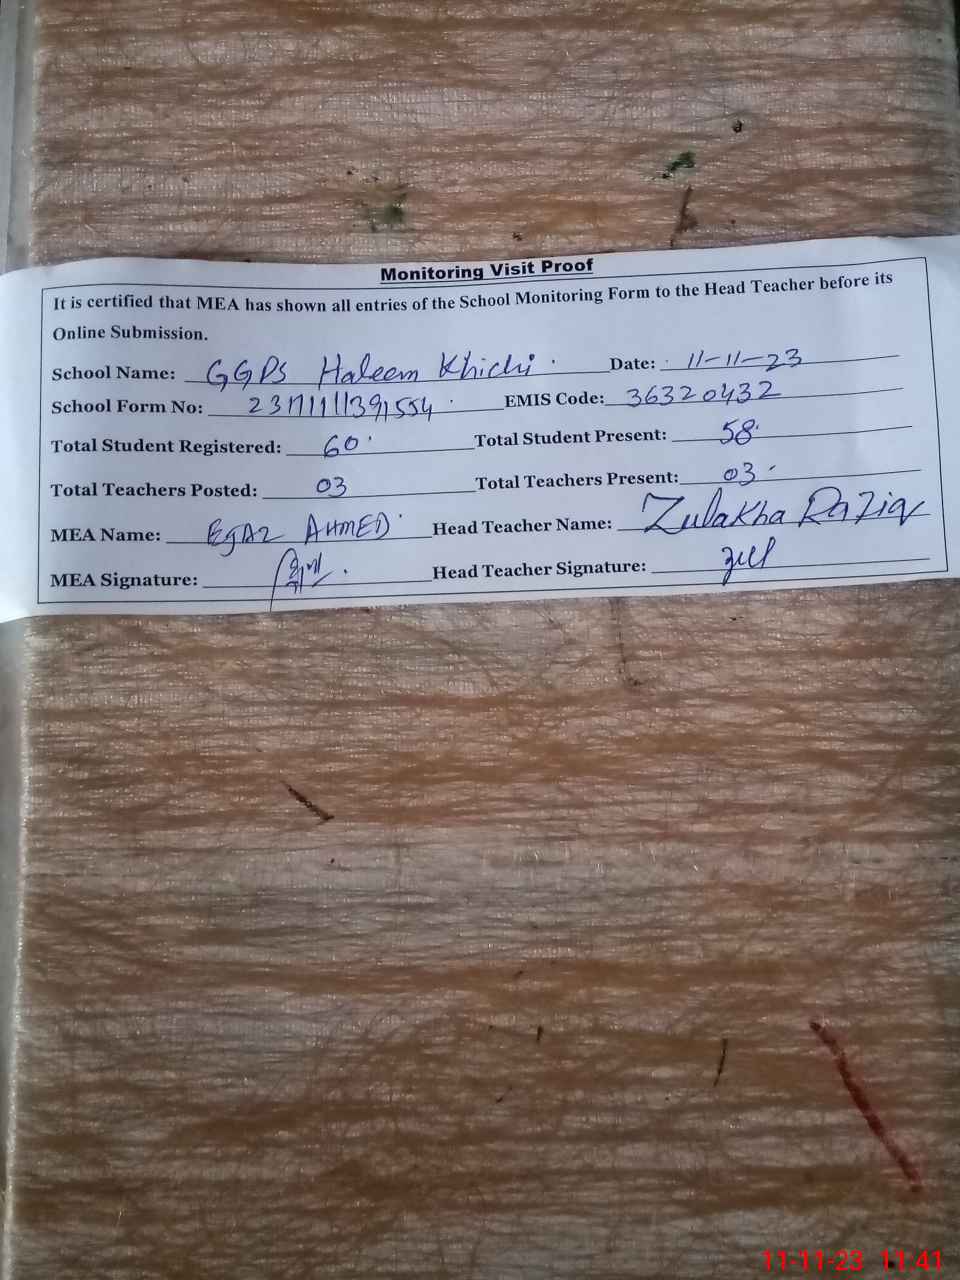 Monitoring Visit Proof
It is certified that MEA has shown all entries of the School Monitoring Form to the Head Teacher before its
Online Submission.
School Name: GGPS Haleem Khichi Date: 11-11-23
School Form No: EMIS Code: 36320432
Total Student Registered: 60 Total Student Present: 58
Total Teachers Posted: 03 Total Teachers Present: 03
MEA Name: EJAZ AHMED Head Teacher Name: Zulakha Raziq
MEA Signature: Head Teacher Signature:
11-11-23 11:41